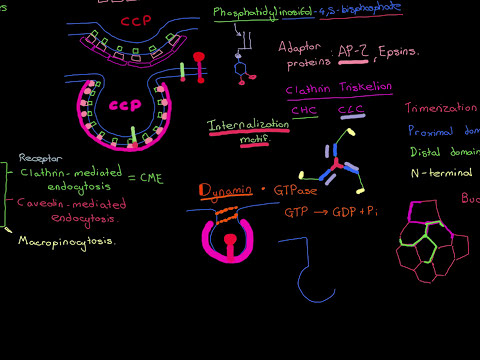 es
CCP
Phosphatidylinositol-4,5-bisphosphate
Adaptor
proteins : AP-2, Epsins.
CCP
Clathin Triskelion
CHC CLC
Trimerization
Internalization
motif
Proximal dom
Distal domain
N-terminal
Receptor
Clathin-mediated
endocytosis = CME
Caveolin-mediated
endocytosis.
Macropinocytosis.
Dynamin • GTPase
GTP → GDP + Pi
Buc